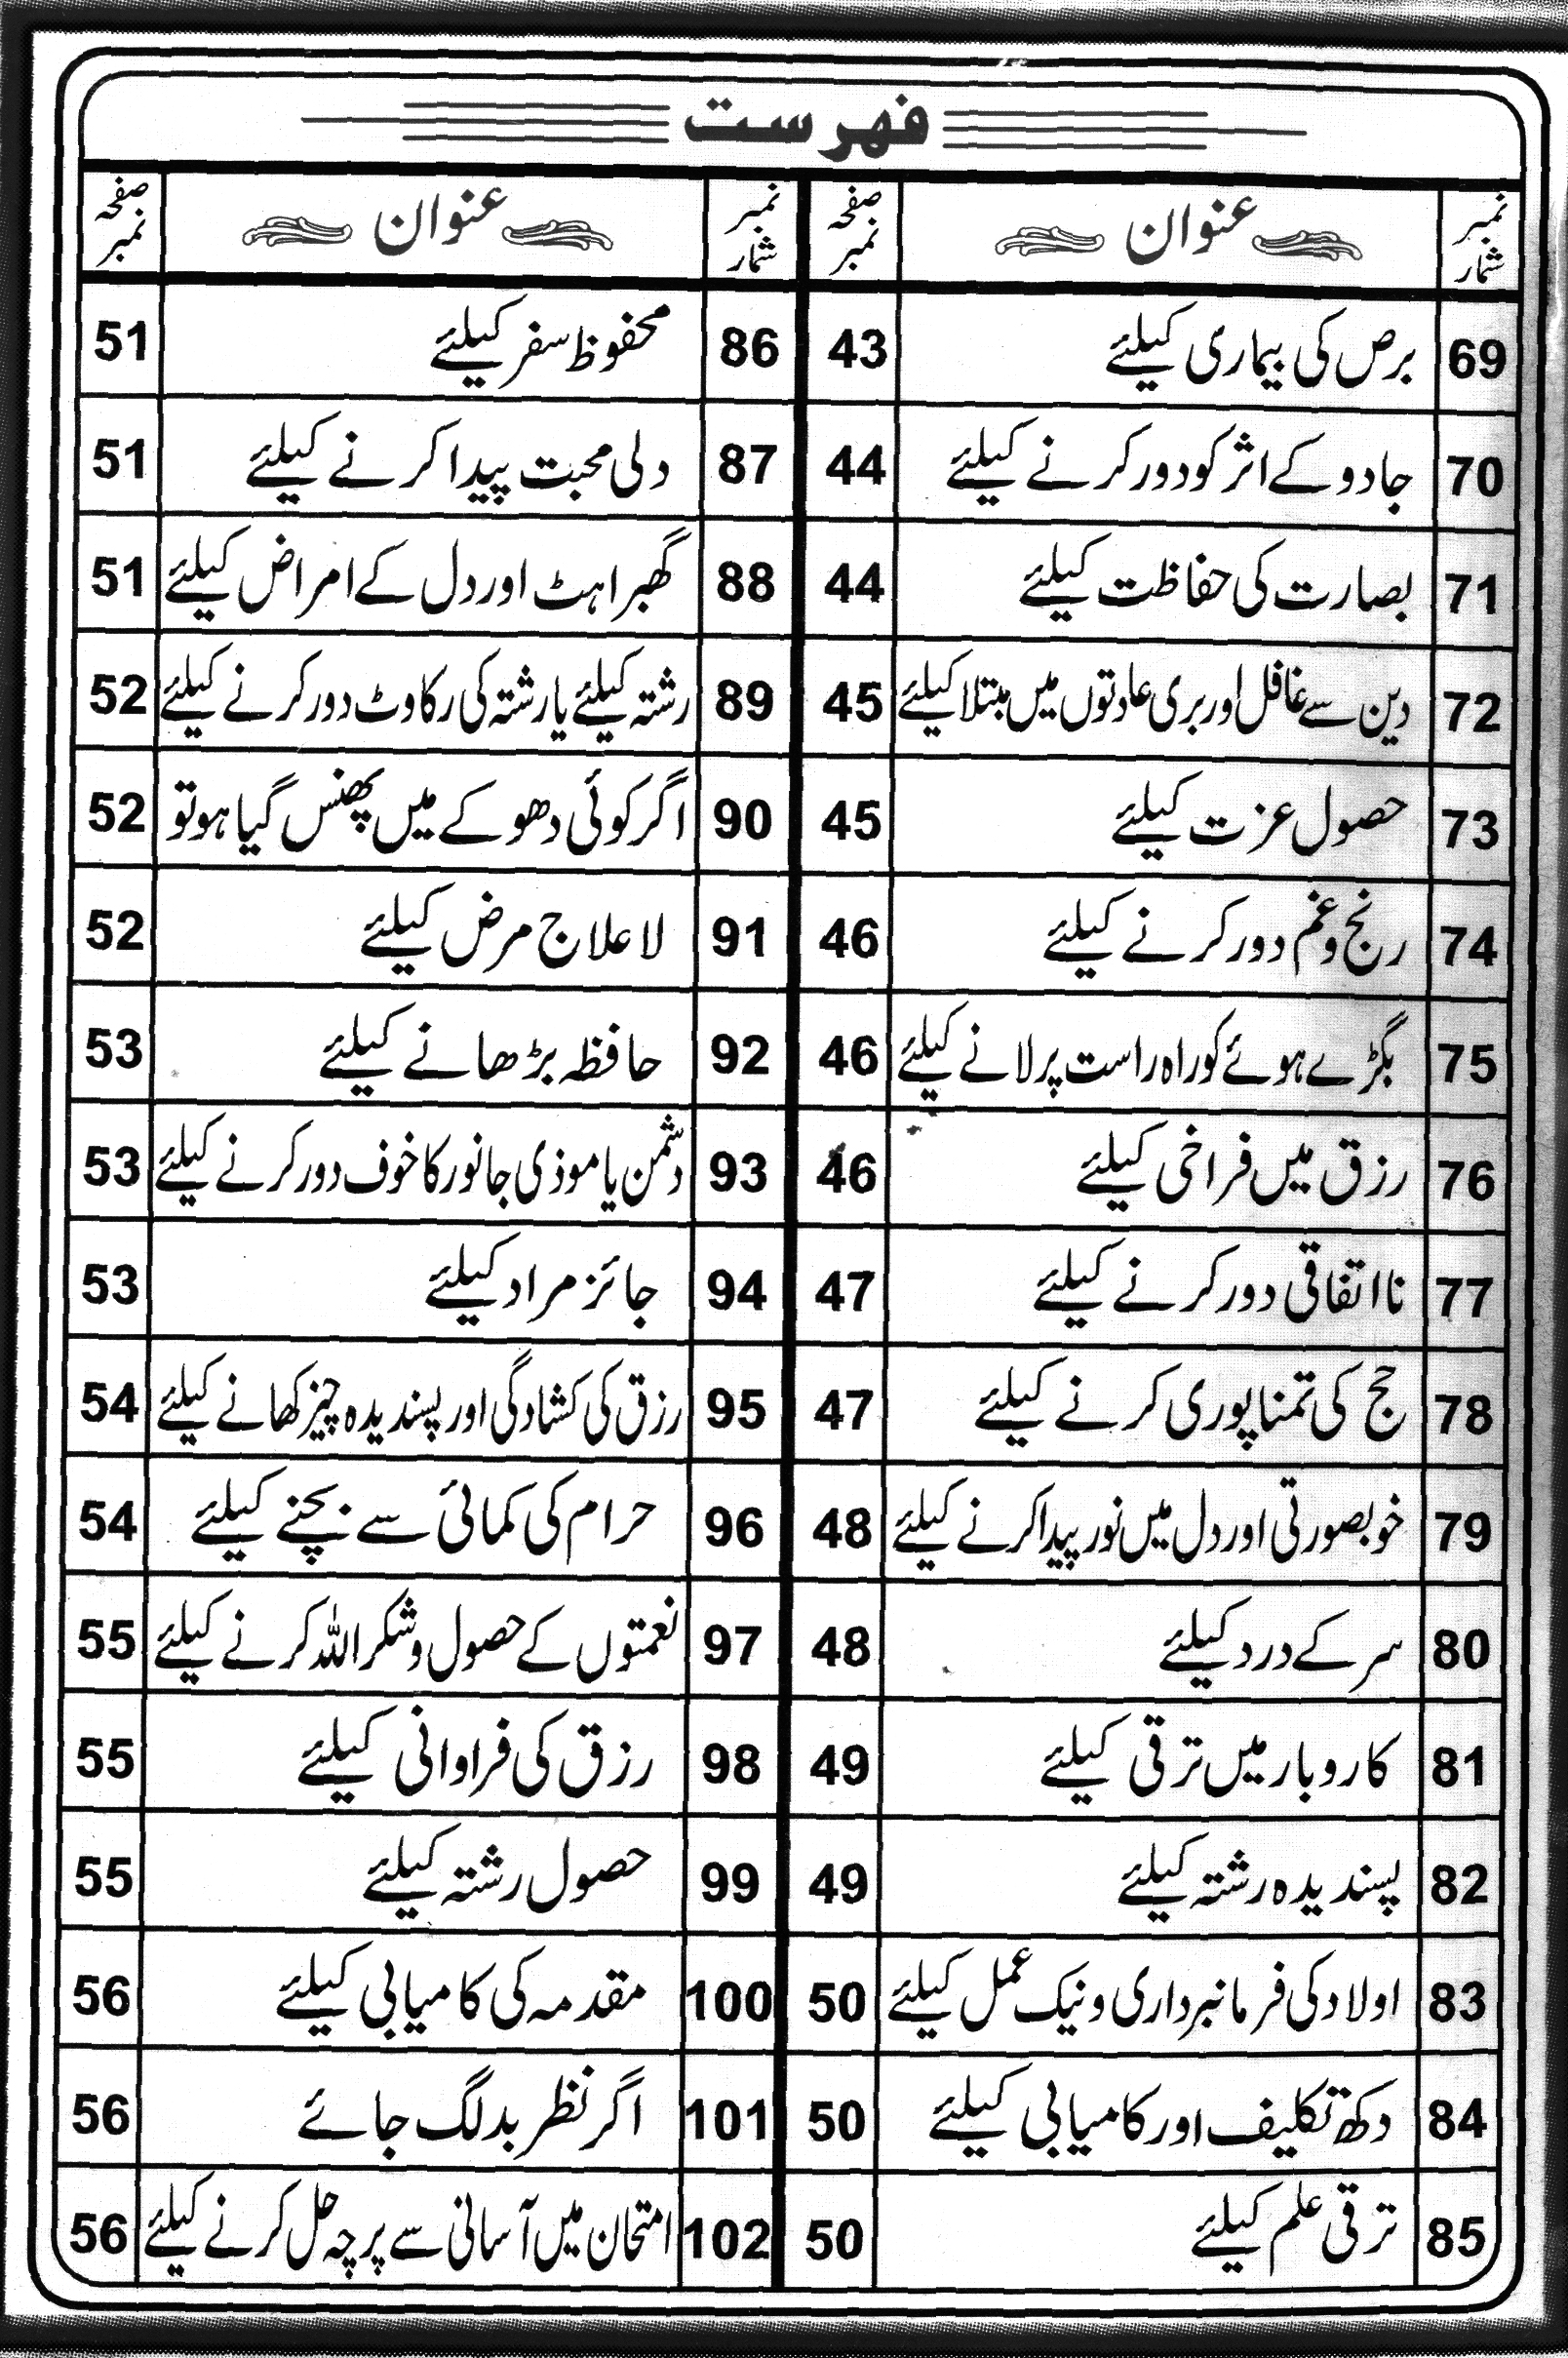 فہرست
نمبر شمار عنوان صفحہ نمبر نمبر شمار عنوان صفحہ نمبر
69 برص کی بیماری کیلئے 43 86 محفوظ سفر کیلئے 51
70 جادو کے اثر کو دور کرنے کیلئے 44 87 دلی محبت پیدا کرنے کیلئے 51
71 بصارت کی حفاظت کیلئے 44 88 گھبراہٹ اور دل کے امراض کیلئے 51
72 دین سے غافل اور بری عادتوں میں مبتلا کیلئے 45 89 رشتہ کیلئے یا رشتہ کی رکاوٹ دور کرنے کیلئے 52
73 حصول عزت کیلئے 45 90 اگر کوئی دھوکے میں پھنس گیا ہو تو 52
74 رنج و غم دور کرنے کیلئے 46 91 لاعلاج مرض کیلئے 52
75 بگڑے ہوئے کو راہ راست پر لانے کیلئے 46 92 حافظہ بڑھانے کیلئے 53
76 رزق میں فراخی کیلئے 46 93 دشمن یا موذی جانور کا خوف دور کرنے کیلئے 53
77 نا اتفاقی دور کرنے کیلئے 47 94 جائز مراد کیلئے 53
78 حج کی تمنا پوری کرنے کیلئے 47 95 رزق کی کشادگی اور پسندیدہ چیز کھانے کیلئے 54
79 خوبصورتی اور دل میں نور پیدا کرنے کیلئے 48 96 حرام کی کمائی سے بچنے کیلئے 54
80 سر کے درد کیلئے 48 97 نعمتوں کے حصول و شکر اللہ کرنے کیلئے 55
81 کاروبار میں ترقی کیلئے 49 98 رزق کی فراوانی کیلئے 55
82 پسندیدہ رشتہ کیلئے 49 99 حصول رشتہ کیلئے 55
83 اولاد کی فرمانبرداری و نیک عمل کیلئے 50 100 مقدمہ کی کامیابی کیلئے 56
84 دکھ تکلیف اور کامیابی کیلئے 50 101 اگر نظر بد لگ جائے 56
85 ترقی علم کیلئے 50 102 امتحان میں آسانی سے پرچہ حل کرنے کیلئے 56